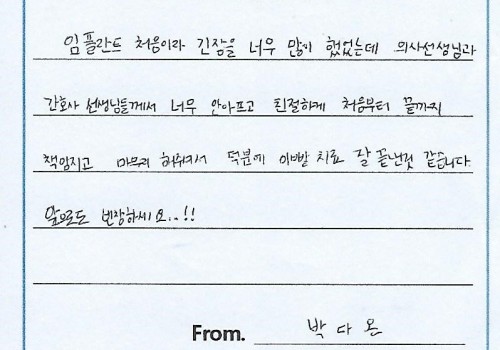 임플란트 처음이라 긴장을 너무 많이 했었는데 의사선생님과
간호사 선생님들께서 너무 안아프고 친절하게 처음부터 끝까지
책임지고 마무리 해줘서 덕분에 이빨 치료 잘 끝낸것 같습니다
앞으로도 번창하세요..!!
From. 박다온